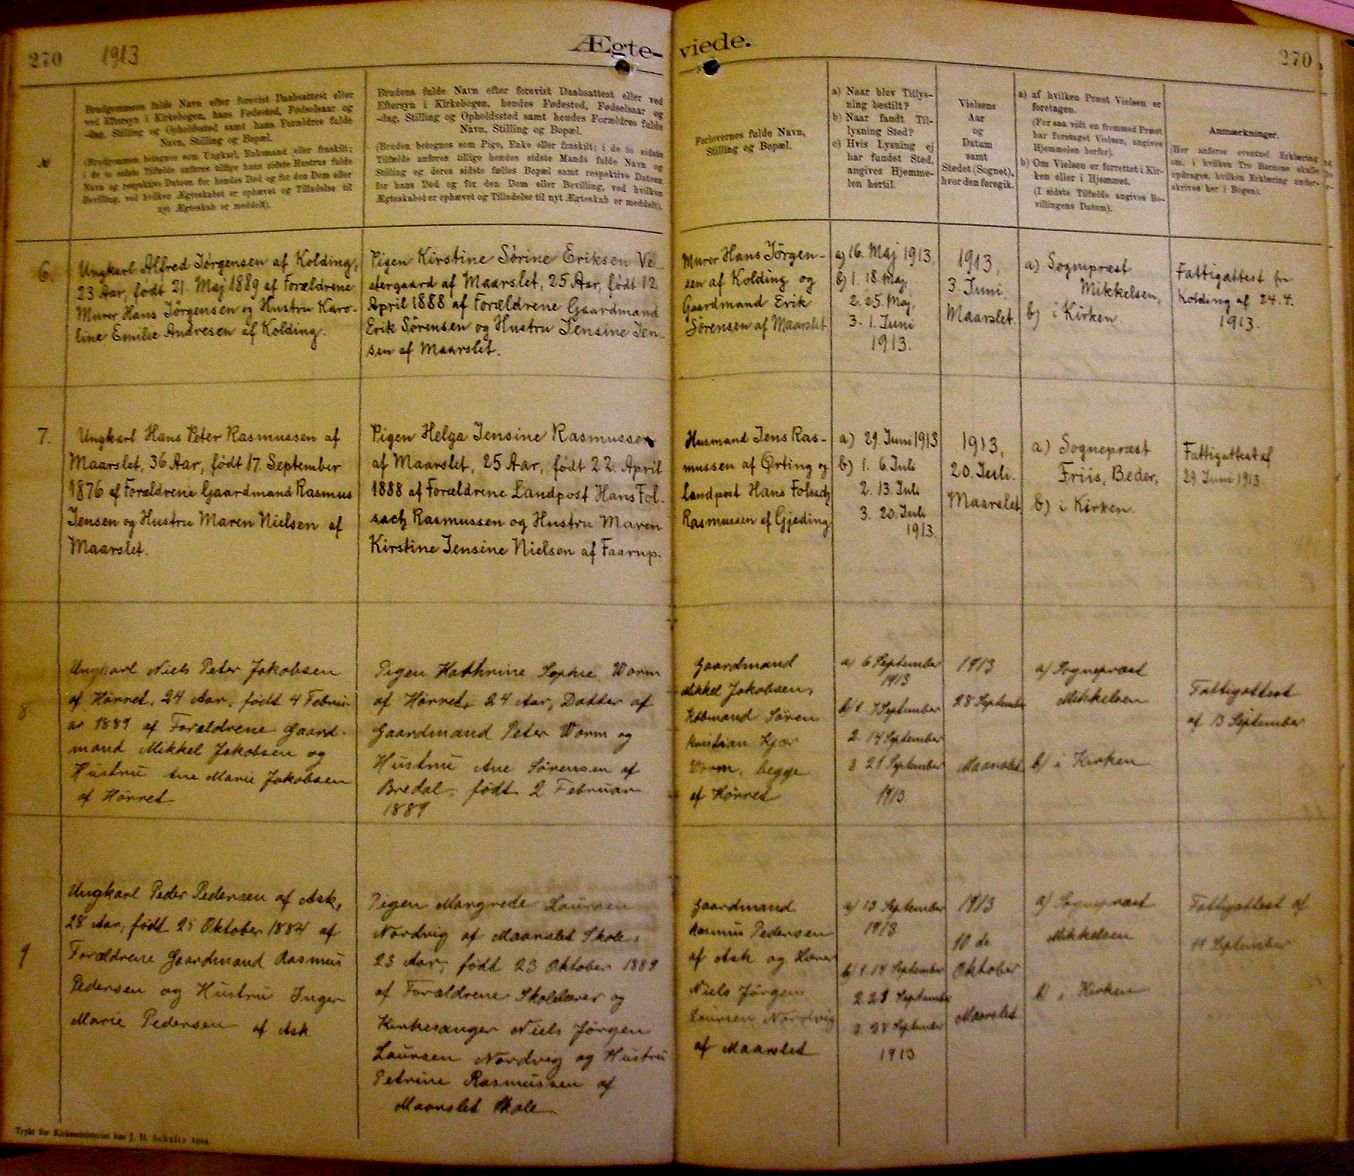 270 1913 Ægte- viede. 270
№
Brudgommens fulde Navn efter forevist Daabsattest eller
ved Eftersyn i Kirkebogen, hans Fødested, Fødselsaar og
-dag, Stilling og Opholdssted samt hans Forældres fulde
Navn, Stilling og Bopæl.
(Brudgommen betegnes som Ungkarl, Enkemand eller fraskilt;
i de to sidste Tilfælde anføres tillige hans sidste Hustrus fulde
Navn og respektive Datoen for hendes Død og for den Dom eller
Bevilling, ved hvilken Ægteskabet er ophævet og Tilladelse til
nyt Ægteskab er meddelt).
Brudens fulde Navn efter forevist Daabsattest eller ved
Eftersyn i Kirkebogen, hendes Fødested, Fødselsaar og
-dag, Stilling og Opholdssted samt hendes Forældres fulde
Navn, Stilling og Bopæl.
(Bruden betegnes som Pige, Enke eller fraskilt; i de to sidste
Tilfælde anføres tillige hendes sidste Mands fulde Navn og
Stilling og deres sidste fælles Bopæl samt respektive Datoen
for hans Død og for den Dom eller Bevilling, ved hvilken
Ægteskabet er ophævet og Tilladelse til nyt Ægteskab er meddelt).
Forlovernes fulde Navn,
Stilling og Bopæl.
a) Naar blev Tillys-
ning bestilt?
b) Naar fandt Til-
lysning Sted?
c) Hvis Lysning ej
har fundet Sted,
angives Hjemme-
len hertil.
Vielsens
Aar
og
Datum
samt
Stedet (Sognet),
hvor den foregik.
a) af hvilken Præst Vielsen er
foretagen.
(For saa vidt en fremmed Præst
har foretaget Vielsen, angives
Hjemmelen herfor).
b) Om Vielsen er forrettet i Kir-
ken eller i Hjemmet.
(I sidste Tilfælde angives Be-
villingens Datum).
Anmærkninger.
(Her anføres eventuel Erklæring
om, i hvilken Tro Børnene skulle
opdrages, hvilken Erklæring under-
skrives her i Bogen).
6.
Ungkarl Alfred Jørgensen af Kolding,
23 Aar, født 21. Maj 1889 af Forældrene
Murer Hans Jørgensen og Hustru Karo-
line Emilie Andresen af Kolding.
Pigen Kirstine Sørine Eriksen Ve-
stergaard af Maarslet, 25 Aar, født 12.
April 1888 af Forældrene Gaardmand
Erik Sørensen og Hustru Jensine Jen-
sen af Maarslet.
Murer Hans Jörgen-
sen af Kolding og
Gaardmand Erik
Sørensen af Maarslet
a) 16. Maj 1913,
b) 1. 18. Maj,
2. 25. Maj,
3. 1. Juni
1913.
1913,
3. Juni
Maarslet
a) Sognepræst
Mikkelsen,
b) i Kirken
Fattigattest fra
Kolding af 24. 4.
1913.
7.
Ungkarl Hans Peter Rasmussen af
Maarslet, 36 Aar, født 17. September
1876 af Forældrene Gaardmand Rasmus
Jensen og Hustru Maren Nielsen af
Maarslet.
Pigen Helga Jensine Rasmussen
af Maarslet, 25 Aar, født 22. April
1888 af Forældrene Landpost Hans Fol-
sach Rasmussen og Hustru Maren
Kirstine Jensine Nielsen af Faarup.
Husmand Jens Ras-
mussen af Ørting og
Landpost Hans Folsach
Rasmussen af Gjeding
a) 29. Juni 1913
b) 1. 6. Juli
2. 13. Juli
3. 20. Juli
1913.
1913,
20. Juli.
Maarslet
a) Sognepræst
Friis, Beder,
b) i Kirken.
Fattigattest af
29. Juni 1913.
8
Ungkarl Niels Peter Jakobsen
af Hørret, 24 Aar, født 4 Febru-
ar 1889 af Forældrene Gaard-
mand Mikkel Jakobsen og
Hustru Ane Marie Jakobsen
af Hørret
Pigen Kathrine Sophie Worm
af Hørret, 24 Aar, Datter af
Gaardmand Peter Worm og
Hustru Ane Sørensen af
Bredal, født 2 Februar
1889
Gaardmand
Mikkel Jakobsen,
Købmand Søren
Kristian Kjær
Worm, begge
af Hørret
a) 6 September
1913
b) 1 7 September
2. 14 September
3 21 September
1913
1913
28 September
Maarslet
a) Sognepræst
Mikkelsen
b) i Kirken
Fattigattest
af 13 September
9
Ungkarl Peder Pedersen af Ask,
28 Aar, født 25 Oktober 1884 af
Forældrene Gaardmand Rasmus
Pedersen og Hustru Inger
Marie Pedersen af Ask
Pigen Margrede Laursen
Nordvig af Maarslet Skole,
23 Aar, født 23 Oktober 1889
af Forældrene Skolelærer og
Kirkesanger Niels Jørgen
Laursen Nordvig og Hustru
Petrine Rasmussen af
Maarslet Skole
Gaardmand
Rasmus Pedersen
af Ask og Lærer
Niels Jørgen
Laursen Nordvig
af Maarslet
a) 13 September
1913
b) 1 14 September
2 21 September
3 28 September
1913
1913
10 de
Oktober
Maarslet
a) Sognepræst
Mikkelsen
b) i Kirken
Fattigattest af
11 September
Trykt for Kirkeministeriet hos J. H. Schultz